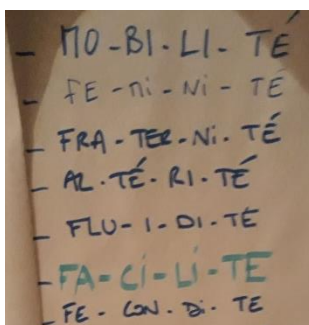 - MO-BI-LI-TÉ
- FE-mi-Ni-TÉ
- FRA-TER-Ni-TÉ
- AL-TÉ-RI-TÉ
- FLU-I-DI-TÉ
- FA-Ci-Li-TE
- FE-CON-Di-TE